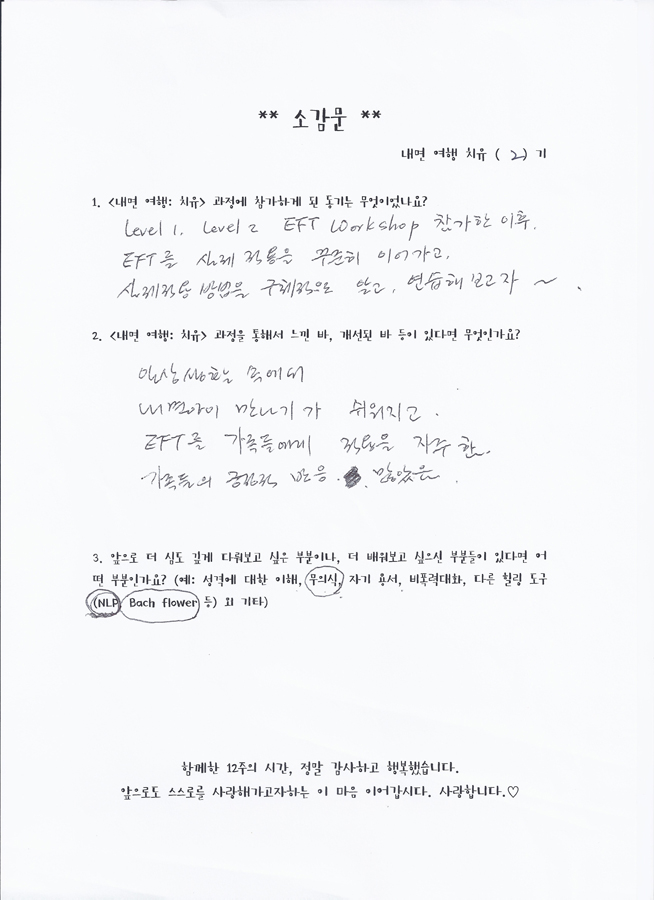 ** 소감문 **
내면 여행 치유 ( 2 ) 기
1. <내면 여행: 치유> 과정에 참가하게 된 동기는 무엇이었나요?
Level 1. Level 2 EFT Workshop 참가한 이후.
EFT를 실례 적용을 꾸준히 이어가고.
실례적용 방법을 구체적으로 알고, 연습해보고자 ~ .
2. <내면 여행: 치유> 과정을 통해서 느낀 바, 개선된 바 등이 있다면 무엇인가요?
일상생활 속에서
내면아이 만나기가 쉬워지고.
EFT를 가족들에게 적용을 자주 함.
가족들의 긍정적 반응. 많았음.
3. 앞으로 더 심도 깊게 다뤄보고 싶은 부분이나, 더 배워보고 싶으신 부분들이 있다면 어
떤 부분인가요? (예: 성격에 대한 이해, 무의식, 자기 용서, 비폭력대화, 다른 힐링 도구
(NLP, Bach flower 등) 외 기타)
함께한 12주의 시간, 정말 감사하고 행복했습니다.
앞으로도 스스로를 사랑해가고자하는 이 마음 이어갑시다. 사랑합니다.♡